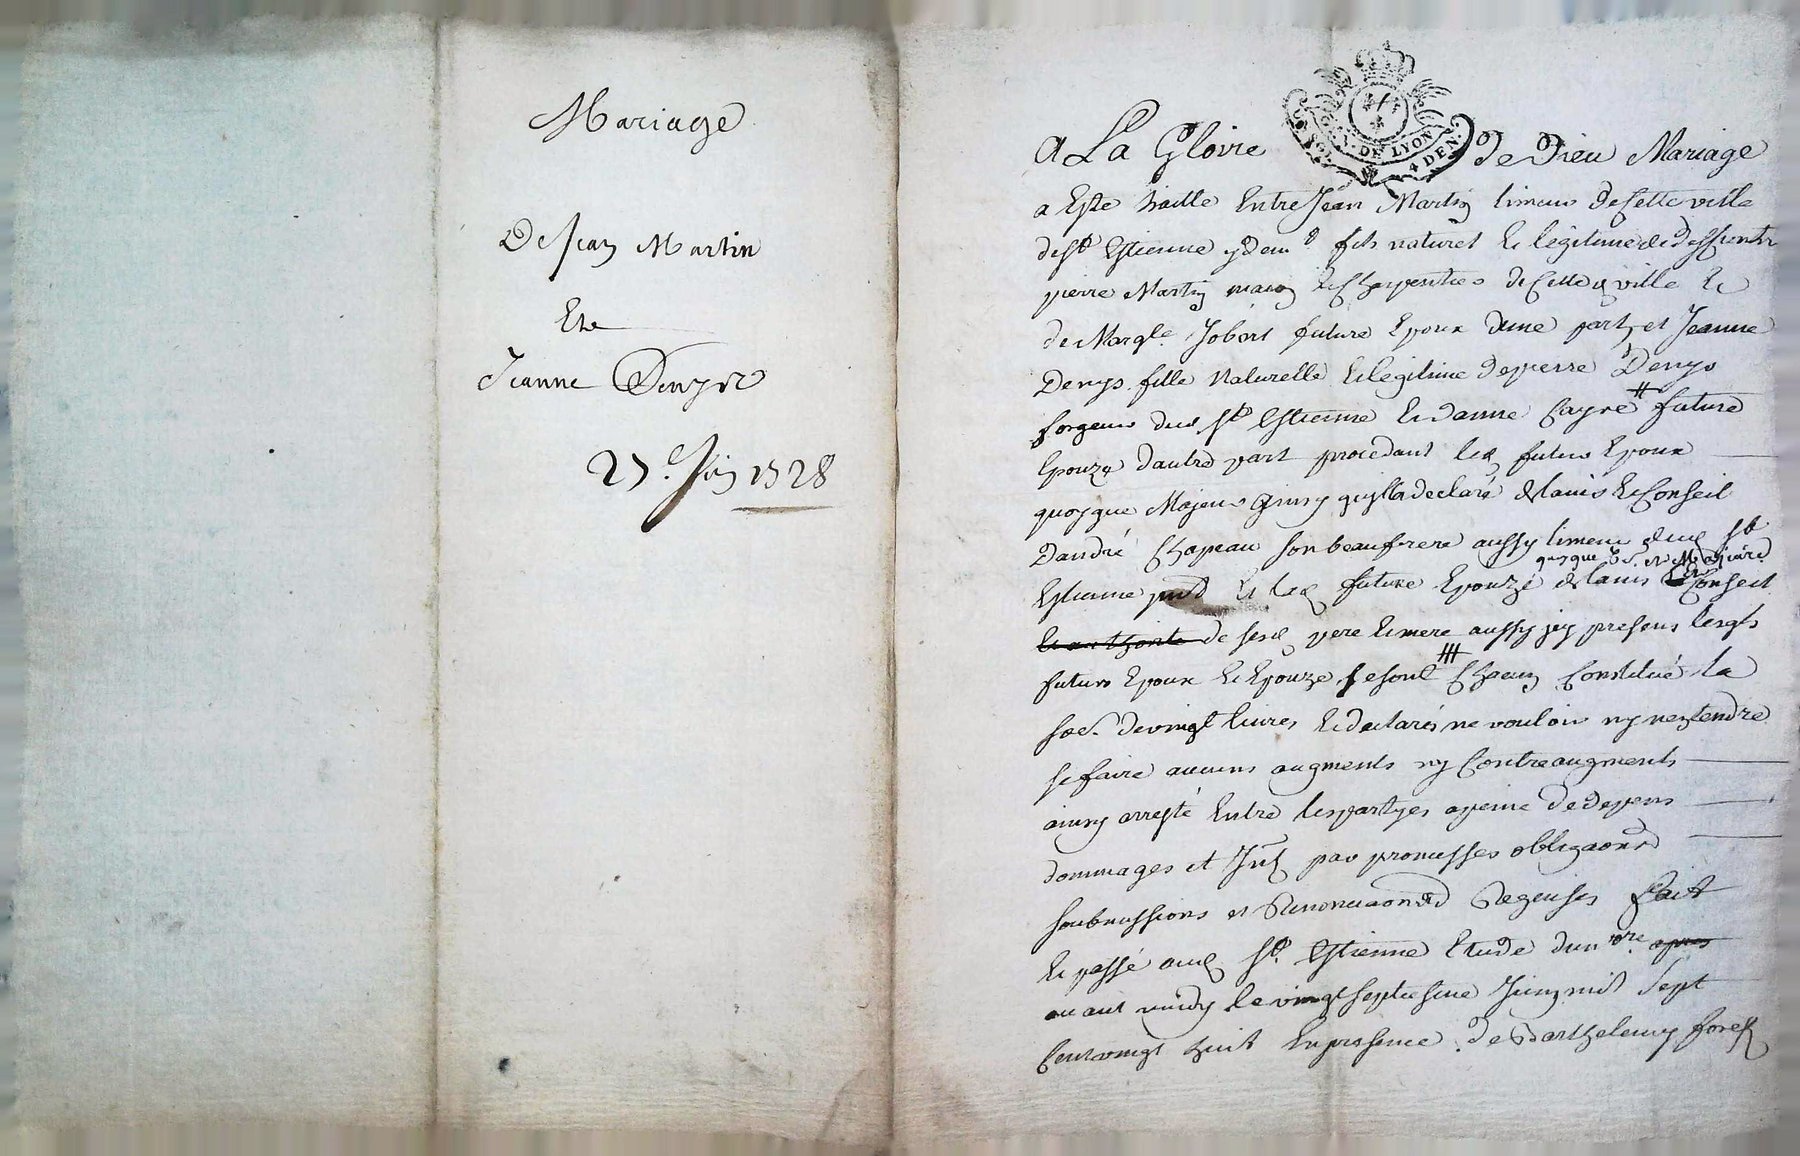 Mariage
De Jean Martin
Et
Jeanne Denys
27.e Juin 1728
GEN. DE LYON
4 DEN.
A La Gloire de Dieu Mariage
a Este traitté Entre Jean Martin limeur de cette ville
de St Estienne y dem.t fils naturel Et légitime de deffunts
pierre Martin maçon Et Charpentier de cette ville Et
de Margte. Jobert future Epoux dune part, et Jeanne
Denys fille Naturelle Et légitime de pierre Denys
forgeur dud St Estienne Et danne Cayre # future
Epouze dautre part procedant led futur Epoux
quoyque Majeur ainsy quylla declaré de lavis Et Conseil
Dandré Chapeau son beaufrere aussy limeur dud St
quoyque Majeure
Estienne Et lad future Epouze de lavis Et Conseil
Et authorité de sesd pere Et mere aussy icy presens lesqls
futurs Epoux Et Epouze se sont Chacun Constitué la
so.e de vingt livres Et declarés ne vouloir ny nentendre
se faire aucuns augments ny Contreaugments
ainsy arresté Entre les partyes a peine de depens
dommages et Int par promesses obligaons
soubmissions et Renonciaons Requises fait
Et passé aud St Estienne Etude du nre apres
avant midy le vingtseptiesme Juin mil Sept
Cent vingt huit En presence de Barthelemy forest